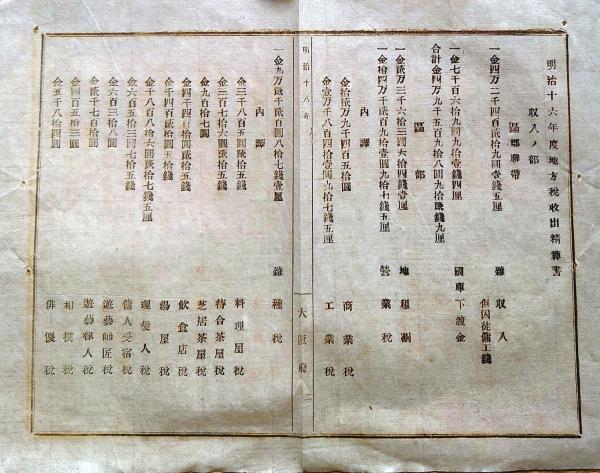 明治十六年度地方税收出精算書
收入ノ部
區郡聯帶
一金四万二千四百貳拾九圓壹錢五厘 雜收入
但囚徒傭工錢
一金七千百六拾九圓九拾壹錢四厘 國庫下渡金
合計金四万九千五百九拾八圓九拾貳錢九厘
區部
一金貳万三千六拾三圓六拾四錢壹厘 地租割
一金拾四万千貳百九圓九拾七錢五厘 營業稅
內譯
金拾貳万九千四百五拾圓 商業稅
金壹万千八百四拾壹圓九拾七錢五厘 工業稅
明治十八年
大阪府 二
一金九万貳千貳百圓八拾七錢壹厘 雜種稅
內譯
金三千八百五圓貳拾五錢 料理屋稅
金二百七拾六圓貳拾五錢 待合茶屋稅
金九百拾七圓 芝居茶屋稅
金四千四百拾四圓五拾錢 飲食店稅
金千四百貳拾圓五拾錢 湯屋稅
金千八百八拾六圓貳拾七錢五厘 理髮人稅
金六百五拾三圓七拾五錢 傭人受宿稅
金六百三拾八圓 遊藝師匠稅
金貳千七百拾圓 遊藝稼人稅
金四百五拾三圓 相撲稅
金五千八拾四圓 俳優稅